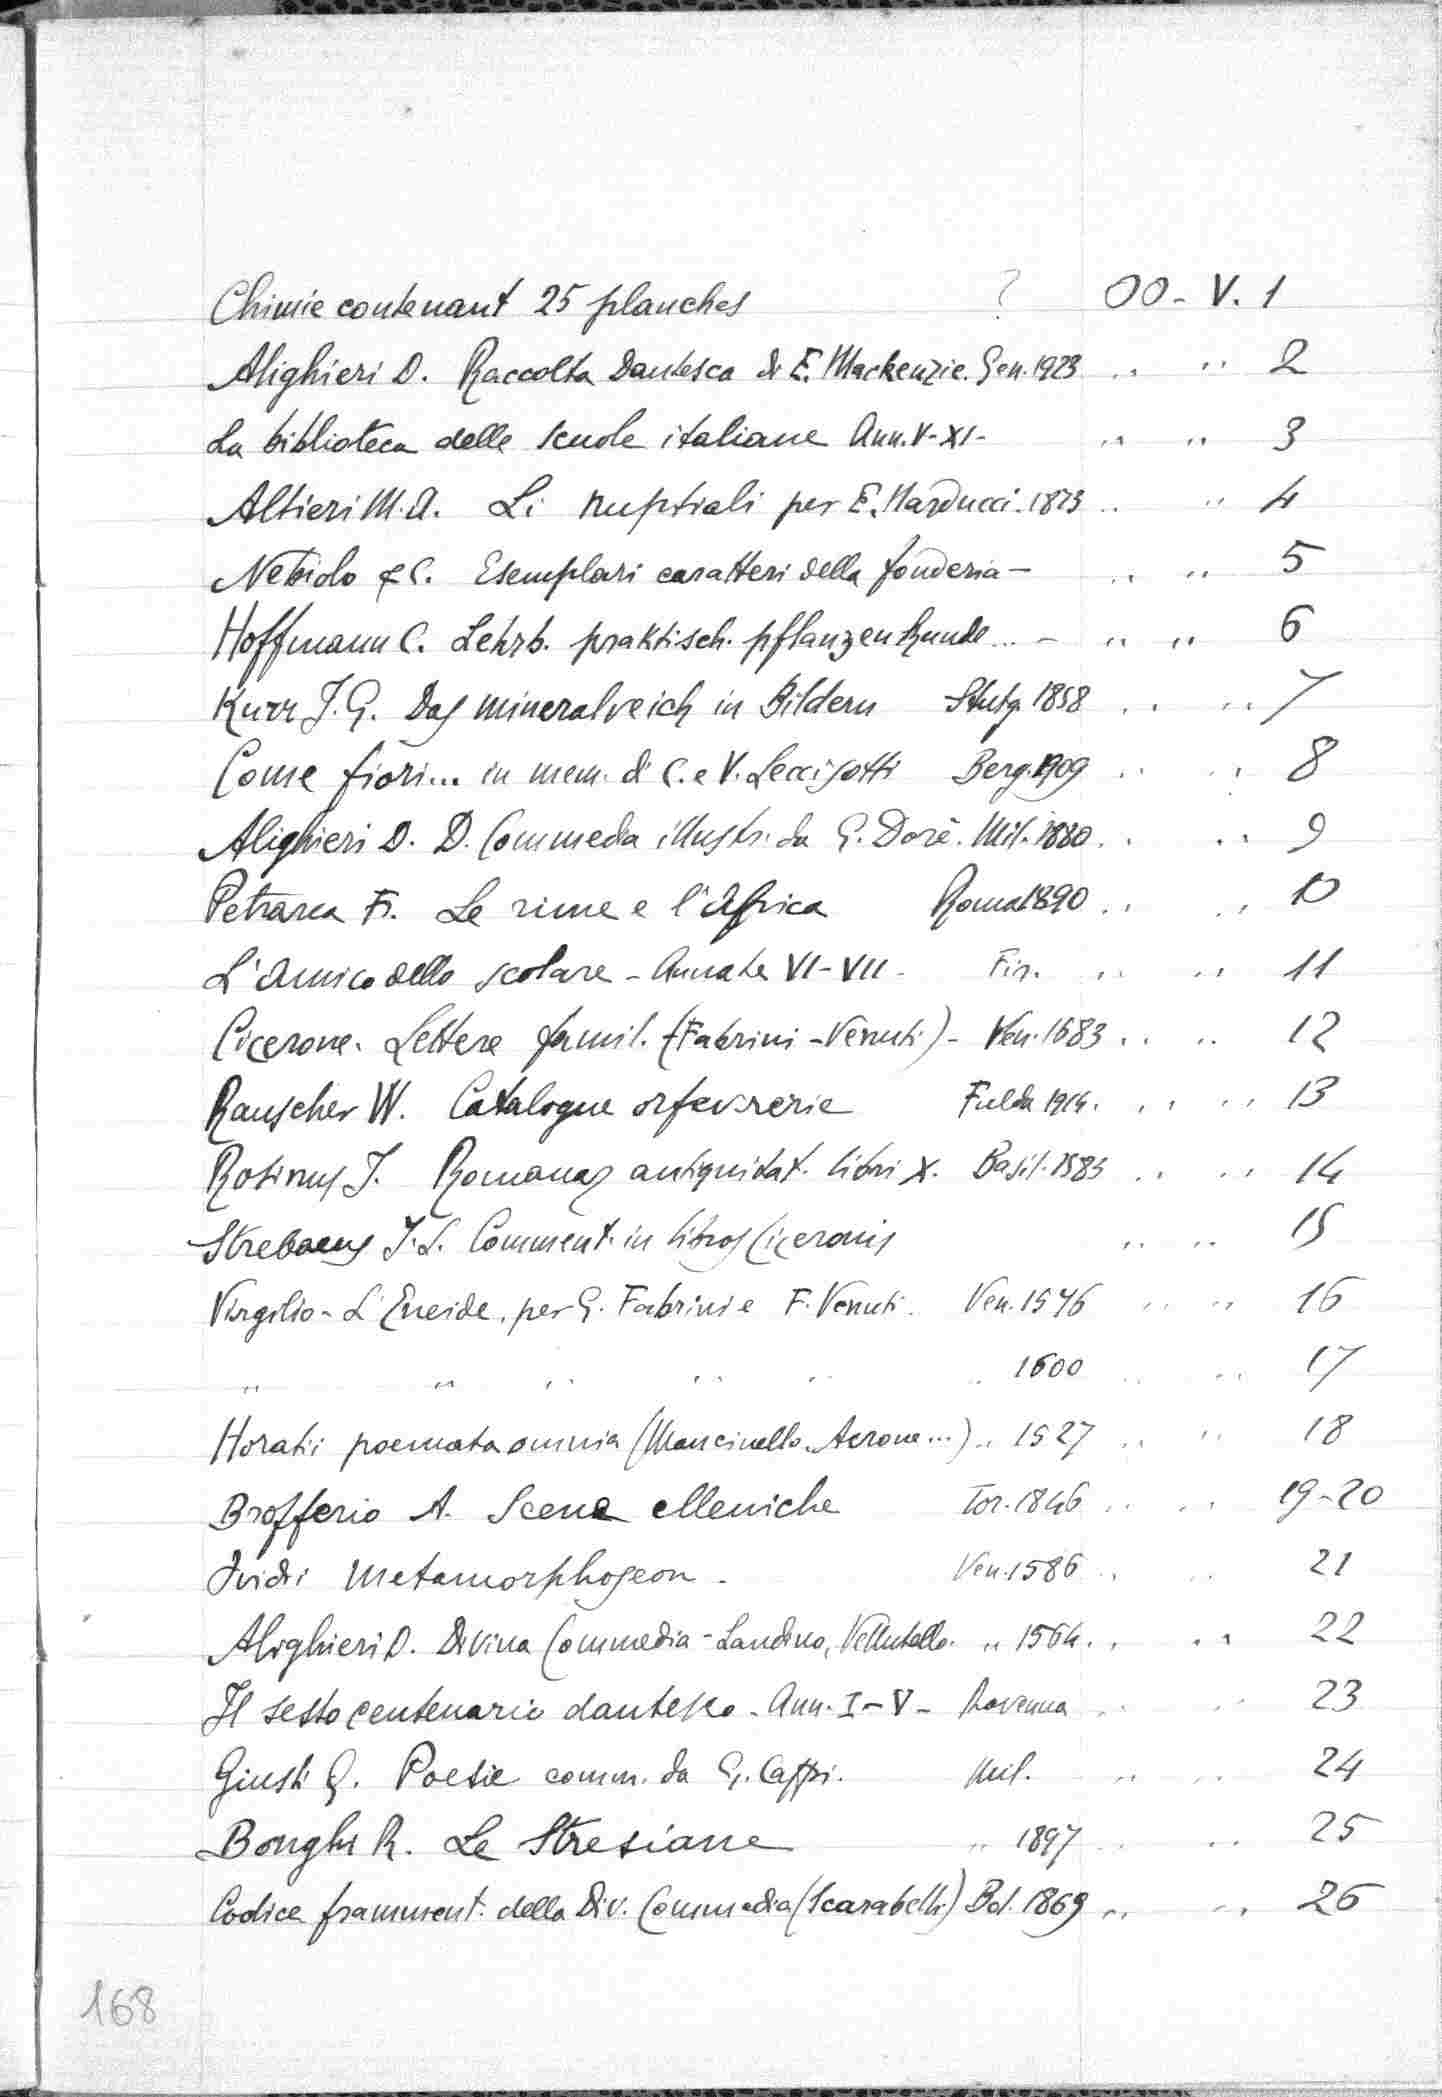 Chimie contenant 25 planches ? OO - V. 1
Alighieri D. Raccolta Dantesca di E. Mackenzie. Gen. 1923 " " 2
La biblioteca delle scuole italiane Ann. V-XI- " " 3
Altieri M.A. Li nuptiali per E. Narducci. 1873 " " 4
Nebiolo & C. Esemplari caratteri della fonderia - " " 5
Hoffmann C. Lehrb. praktisch. pflanzenkunde ... - " " 6
Kurr J.G. Das mineralreich in Bildern Stutg. 1858 " " 7
Come fiori... in mem. di C. e V. Leccisotti Berg. 1909 " " 8
Alighieri D. D. Commedia illustr. da G. Dorè. Mil. 1880. " " 9
Petrarca Fr. Le rime e l'Africa Roma 1890 " " 10
L'Amico dello scolare - Annate VI-VII - Fir. " " 11
Cicerone. Lettere famil. (Fabrini - Venuti) - Ven. 1683 " " 12
Rauscher W. Catalogue orfevrerie Fulda 1914. " " 13
Rosinus J. Romanas antiquitat. libri X. Basil. 1583 " " 14
Strebaeus J.L. Comment. in libros Ciceronis " " 15
Virgilio - L'Eneide, per G. Fabrini e F. Venuti. Ven. 1576 " " 16
" " " " " " 1600 " " 17
Horatii poemata omnia (Mancinello, Acrone ...) " 1527 " " 18
Brofferio A. Scene elleniche Tor. 1846 " " 19-20
Ovidii Metamorphoseon - Ven. 1586 " " 21
Alighieri D. Divina Commedia - Landino, Vellutello. " 1564. " " 22
Il sesto centenario dantesco - Ann. I-V - Ravenna " " 23
Giusti G. Poesie comm. da G. Cappi. Mil. " " 24
Bonghi R. Le Stresiane " 1897 " " 25
Codice framment. della Div. Commedia (Scarabelli) Bol. 1869 " " 26
168